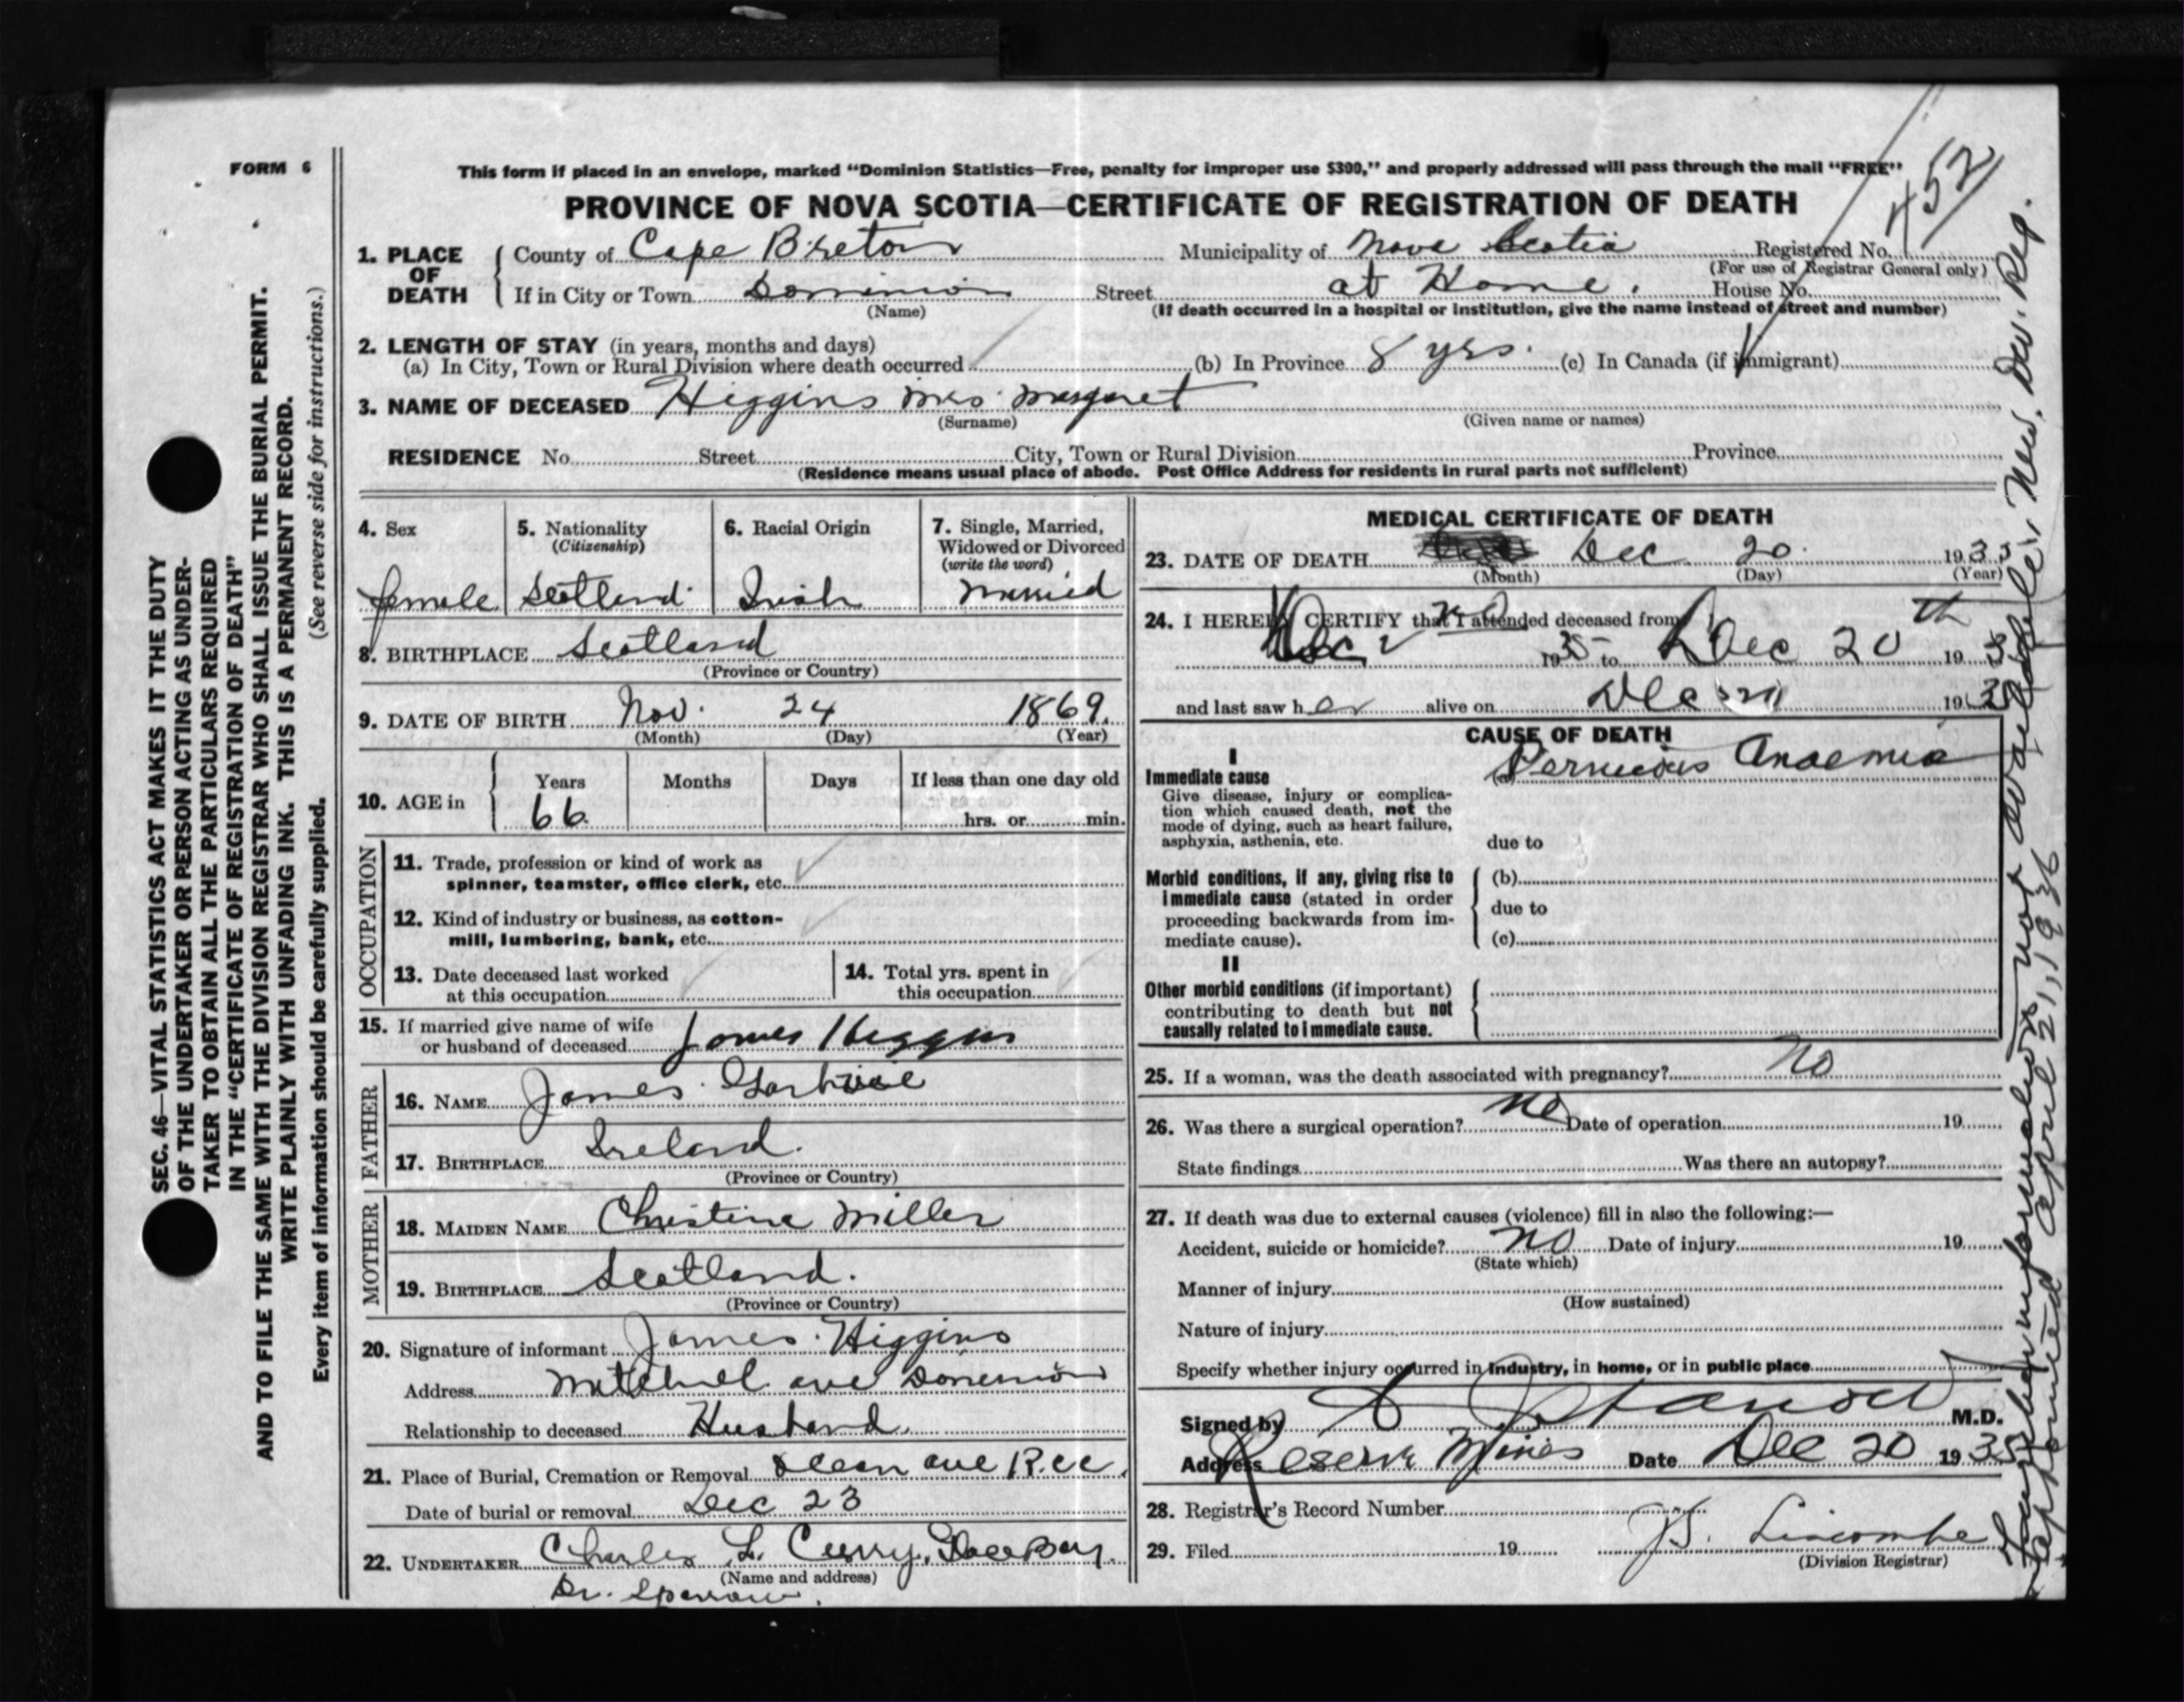 FORM 6
This form if placed in an envelope, marked “Dominion Statistics—Free, penalty for improper use $300,” and properly addressed will pass through the mail “FREE”
PROVINCE OF NOVA SCOTIA—CERTIFICATE OF REGISTRATION OF DEATH
452
1. PLACE OF DEATH
County of Cape Breton Municipality of Nova Scotia Registered No.
(For use of Registrar General only)
If in City or Town Dominion Street at Home. House No.
(Name) (If death occurred in a hospital or institution, give the name instead of street and number)
2. LENGTH OF STAY (in years, months and days)
(a) In City, Town or Rural Division where death occurred (b) In Province 8 yrs. (c) In Canada (if immigrant)
3. NAME OF DECEASED Higgins Mrs Margaret
(Surname) (Given name or names)
RESIDENCE No. Street City, Town or Rural Division Province
(Residence means usual place of abode. Post Office Address for residents in rural parts not sufficient)
4. Sex
female
5. Nationality
(Citizenship)
Scotland
6. Racial Origin
Irish
7. Single, Married,
Widowed or Divorced
(write the word)
Married
8. BIRTHPLACE Scotland
(Province or Country)
9. DATE OF BIRTH Nov. 24 1869.
(Month) (Day) (Year)
10. AGE in Years Months Days If less than one day old
66 hrs. or min.
OCCUPATION
11. Trade, profession or kind of work as
spinner, teamster, office clerk, etc.
12. Kind of industry or business, as cotton-
mill, lumbering, bank, etc.
13. Date deceased last worked
at this occupation
14. Total yrs. spent in
this occupation
15. If married give name of wife
or husband of deceased James Higgins
FATHER
16. NAME James
17. BIRTHPLACE Ireland.
(Province or Country)
MOTHER
18. MAIDEN NAME Christine Miller
19. BIRTHPLACE Scotland.
(Province or Country)
20. Signature of informant James Higgins
Address Mitchell ave Dominion
Relationship to deceased Husband.
21. Place of Burial, Cremation or Removal ave
Date of burial or removal Dec 23
22. UNDERTAKER Charles L. Curry, Glace Bay.
(Name and address)
Dr. Sparrow.
MEDICAL CERTIFICATE OF DEATH
23. DATE OF DEATH Dec 20. 1935
(Month) (Day) (Year)
24. I HEREBY CERTIFY that I attended deceased from
Dec 1935 to Dec 20th 193
and last saw her alive on Dec 193
CAUSE OF DEATH
I
Immediate cause
(a) Pernicious Anaemia
Give disease, injury or complica-
tion which caused death, not the
mode of dying, such as heart failure,
asphyxia, asthenia, etc. due to
Morbid conditions, if any, giving rise to
immediate cause (stated in order
proceeding backwards from im-
mediate cause).
(b)
due to
(c)
II
Other morbid conditions (if important)
contributing to death but not
causally related to immediate cause.
25. If a woman, was the death associated with pregnancy? No
26. Was there a surgical operation? No Date of operation 19
State findings Was there an autopsy?
27. If death was due to external causes (violence) fill in also the following:—
Accident, suicide or homicide? No Date of injury 19
(State which)
Manner of injury
(How sustained)
Nature of injury
Specify whether injury occurred in industry, in home, or in public place
Signed by M.D.
Address Reserve Mines Date Dec 20 1935
28. Registrar's Record Number
29. Filed 19
(Division Registrar)
SEC. 46—VITAL STATISTICS ACT MAKES IT THE DUTY
OF THE UNDERTAKER OR PERSON ACTING AS UNDER-
TAKER TO OBTAIN ALL THE PARTICULARS REQUIRED
IN THE “CERTIFICATE OF REGISTRATION OF DEATH”
AND TO FILE THE SAME WITH THE DIVISION REGISTRAR WHO SHALL ISSUE THE BURIAL PERMIT.
WRITE PLAINLY WITH UNFADING INK. THIS IS A PERMANENT RECORD.
Every item of information should be carefully supplied. (See reverse side for instructions.)
Further information not available, New Div. Reg.
April 21, 1936